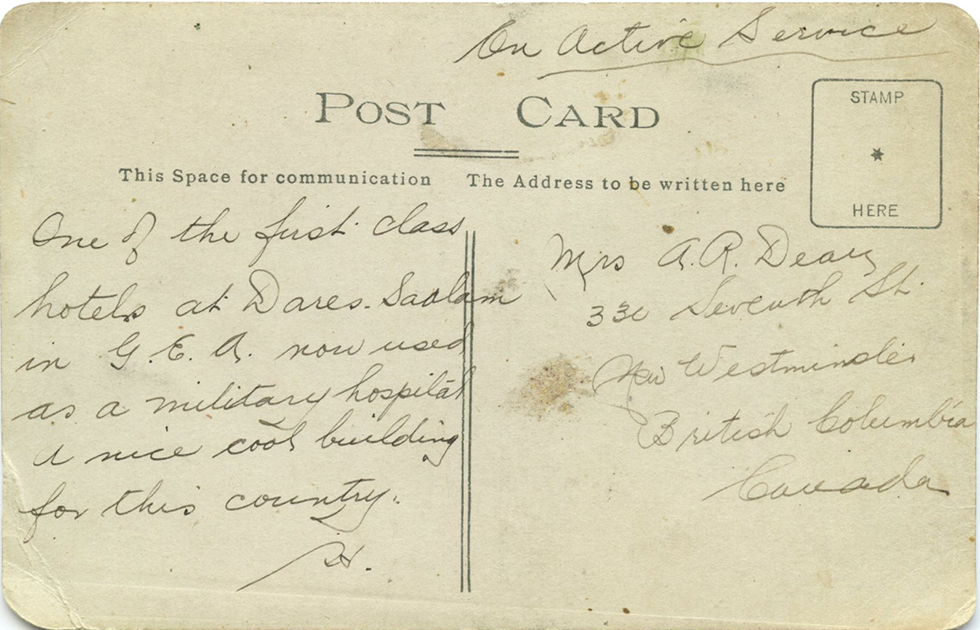 On Active Service
POST CARD
STAMP
HERE
This Space for communication
The Address to be written here
One of the first class
hotels at Dares-Saalam
in G.E.A. now used
as a military hospital
A nice cool building
for this country.
H.
Mrs A.R. Deary
330 Seventh St.
New Westminster
British Columbia
Canada